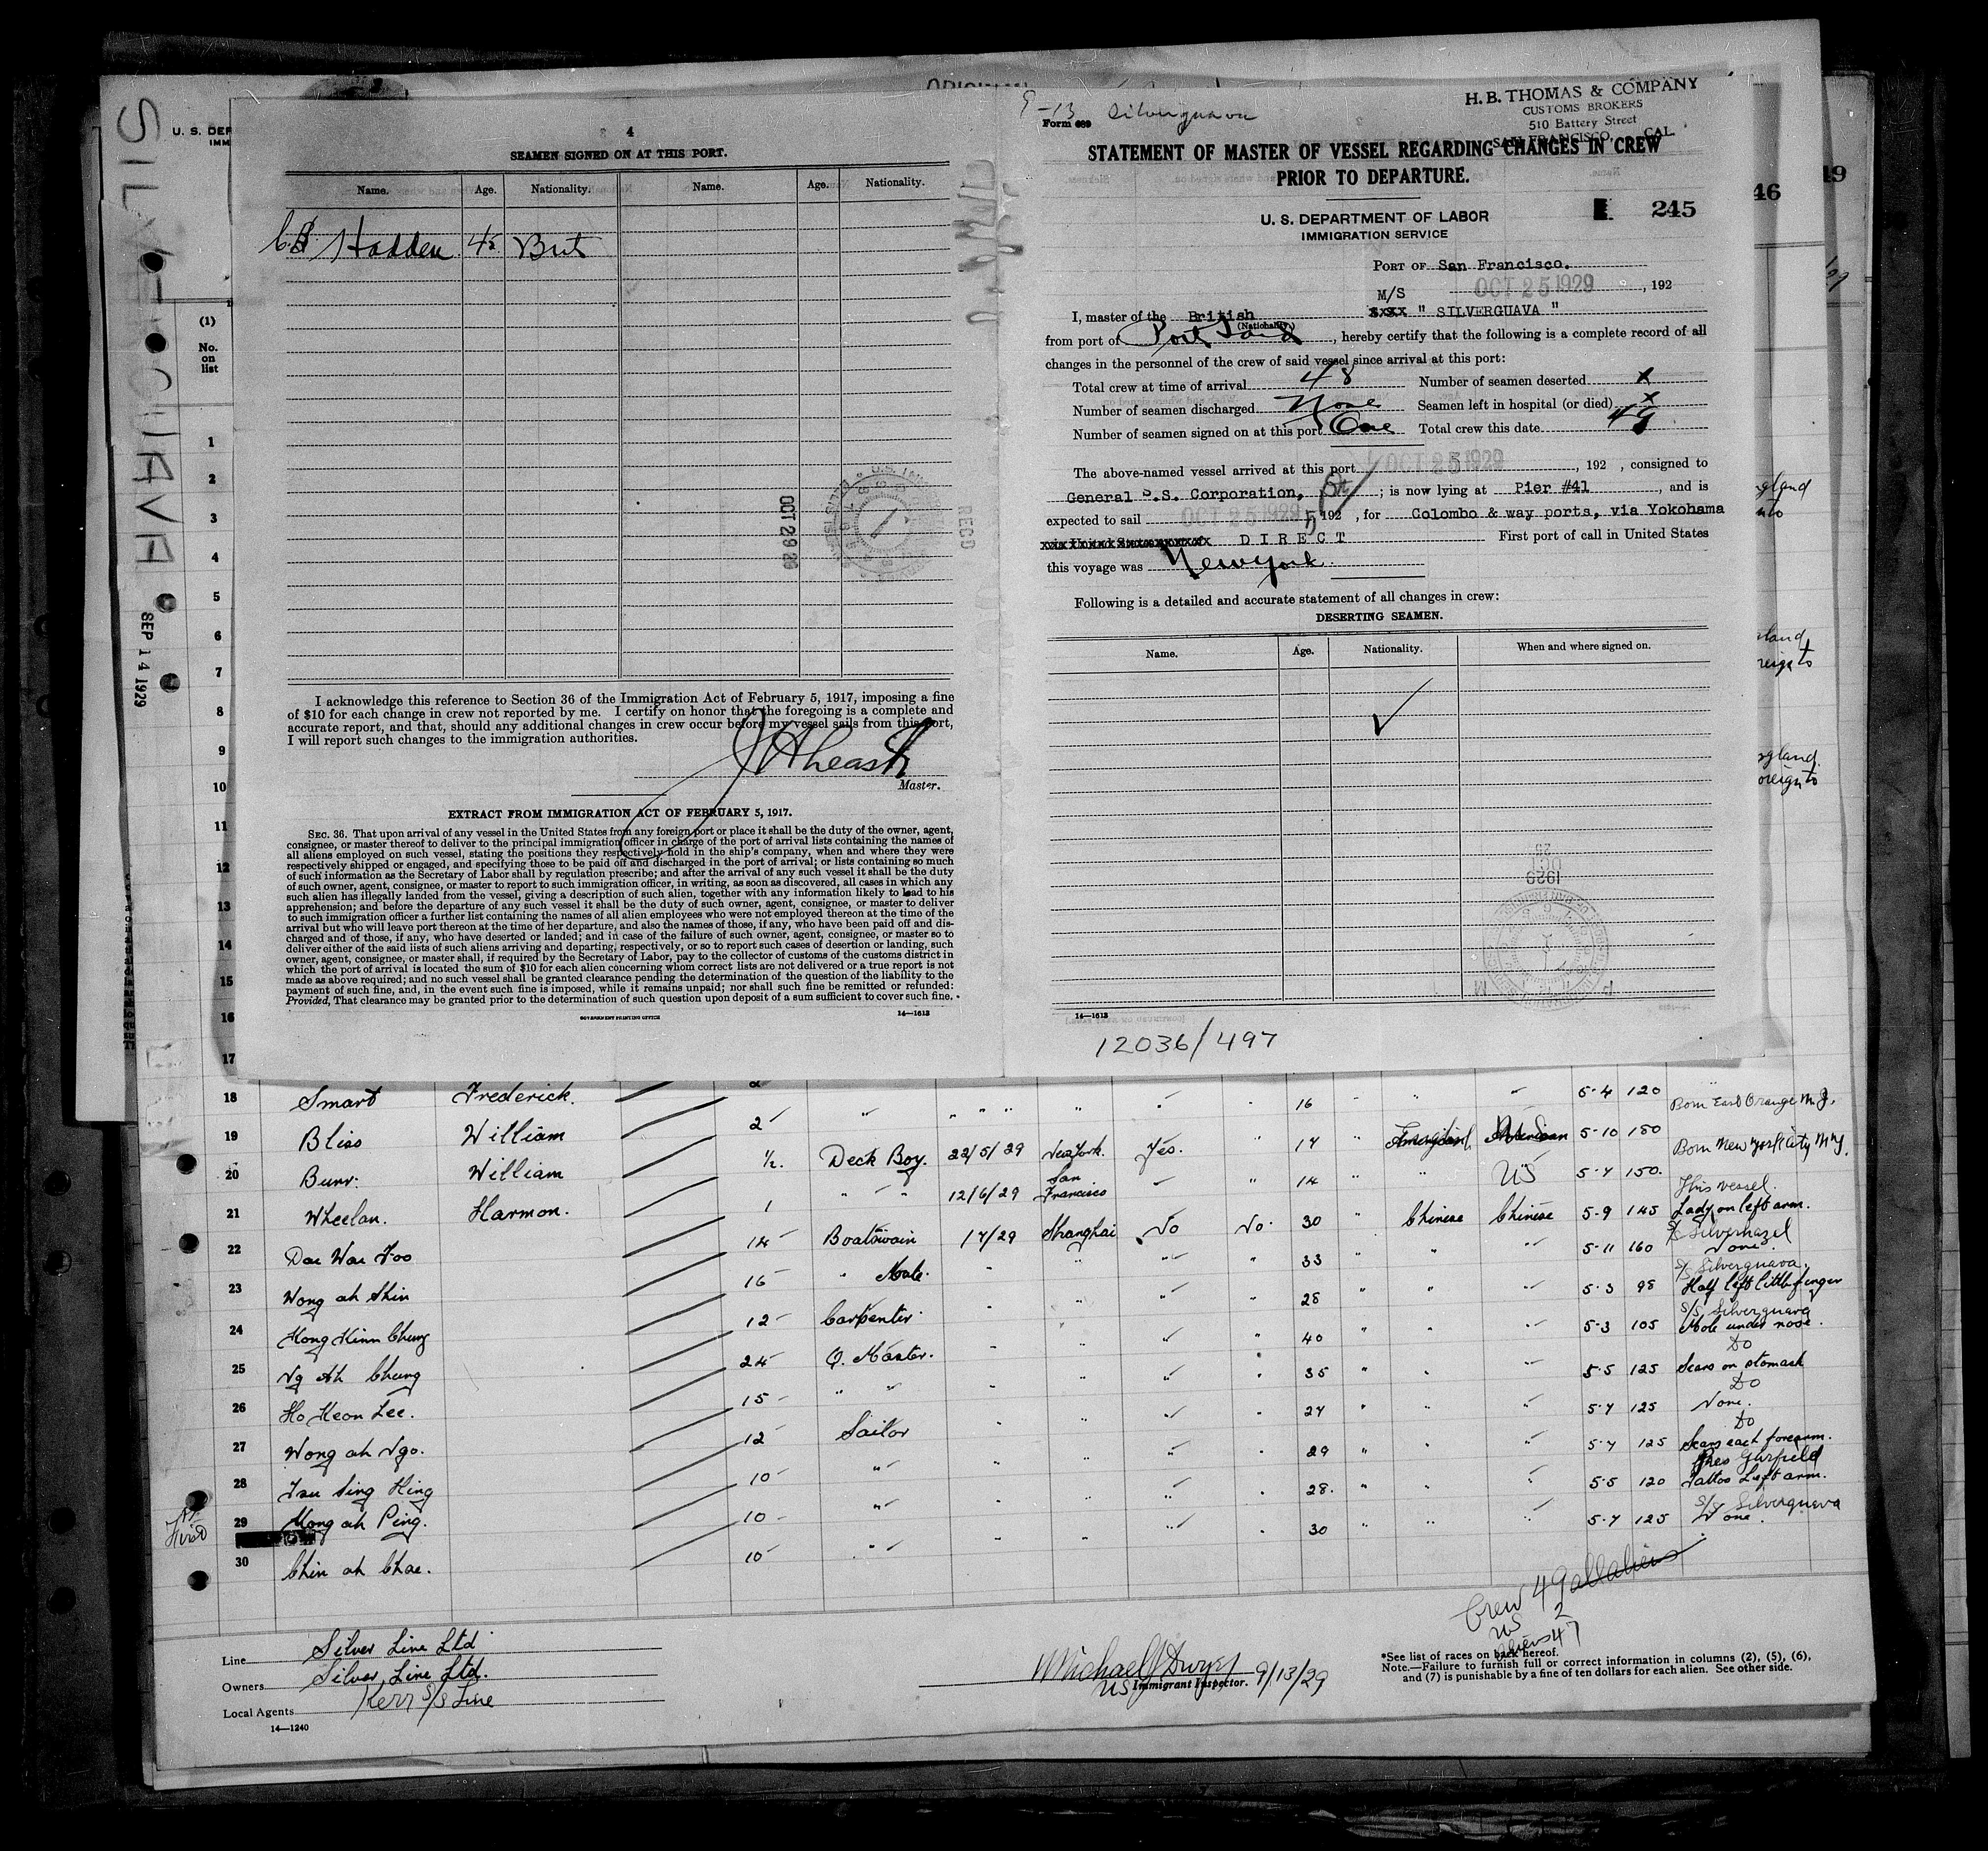 SILVERGUAVA
SEP 14 1929
U. S. DEP
IMM
(1)
No.
on
list
1
2
3
4
5
6
7
8
9
10
11
12
13
14
15
16
17
4
SEAMEN SIGNED ON AT THIS PORT.
Name. Age. Nationality. Name. Age. Nationality.
Hadden 42 Brit
OCT 29 29
RECD
I acknowledge this reference to Section 36 of the Immigration Act of February 5, 1917, imposing a fine
of $10 for each change in crew not reported by me. I certify on honor that the foregoing is a complete and
accurate report, and that, should any additional changes in crew occur before my vessel sails from this port,
I will report such changes to the immigration authorities.
Master.
EXTRACT FROM IMMIGRATION ACT OF FEBRUARY 5, 1917.
SEC. 36. That upon arrival of any vessel in the United States from any foreign port or place it shall be the duty of the owner, agent,
consignee, or master thereof to deliver to the principal immigration officer in charge of the port of arrival lists containing the names of
all aliens employed on such vessel, stating the positions they respectively hold in the ship's company, when and where they were
respectively shipped or engaged, and specifying those to be paid off and discharged in the port of arrival; or lists containing so much
of such information as the Secretary of Labor shall by regulation prescribe; and after the arrival of any such vessel it shall be the duty
of such owner, agent, consignee, or master to report to such immigration officer, in writing, as soon as discovered, all cases in which any
such alien has illegally landed from the vessel, giving a description of such alien, together with any information likely to lead to his
apprehension; and before the departure of any such vessel it shall be the duty of such owner, agent, consignee, or master to deliver
to such immigration officer a further list containing the names of all alien employees who were not employed thereon at the time of the
arrival but who will leave port thereon at the time of her departure, and also the names of those, if any, who have been paid off and dis-
charged and of those, if any, who have deserted or landed; and in case of the failure of such owner, agent, consignee, or master so to
deliver either of the said lists of such aliens arriving and departing, respectively, or so to report such cases of desertion or landing, such
owner, agent, consignee, or master shall, if required by the Secretary of Labor, pay to the collector of customs of the customs district in
which the port of arrival is located the sum of $10 for each alien concerning whom correct lists are not delivered or a true report is not
made as above required; and no such vessel shall be granted clearance pending the determination of the question of the liability to the
payment of such fine, and, in the event such fine is imposed, while it remains unpaid; nor shall such fine be remitted or refunded:
Provided, That clearance may be granted prior to the determination of such question upon deposit of a sum sufficient to cover such fine.
GOVERNMENT PRINTING OFFICE 14—1613
9-13 Silverguava
Form 689
H. B. THOMAS & COMPANY
CUSTOMS BROKERS
510 Battery Street
SAN FRANCISCO, CAL.
STATEMENT OF MASTER OF VESSEL REGARDING CHANGES IN CREW
PRIOR TO DEPARTURE.
U. S. DEPARTMENT OF LABOR
IMMIGRATION SERVICE
245
PORT OF San Francisco.
OCT 25 1929, 192
I, master of the British M/S " SILVERGUAVA "
(Nationality.)
from port of Portland, hereby certify that the following is a complete record of all
changes in the personnel of the crew of said vessel since arrival at this port:
Total crew at time of arrival 48 Number of seamen deserted x
Number of seamen discharged None Seamen left in hospital (or died) x
Number of seamen signed on at this port One Total crew this date 49
The above-named vessel arrived at this port OCT 25 1929, 192 , consigned to
General S.S. Corporation, ; is now lying at Pier #41, and is
expected to sail OCT 25 1929, 192 , for Colombo & way ports, via Yokohama
DIRECT First port of call in United States
this voyage was New York.
Following is a detailed and accurate statement of all changes in crew:
DESERTING SEAMEN.
Name. Age. Nationality. When and where signed on.
14—1613
12036/497
46
19
18 Smart Frederick. 2 " " " " " " 16 " " 5-4 120 Born East Orange N.J.
19 Bliss William 1/2 Deck Boy. 22/5/29 New York. Yes. " 17 " 5-10 150 Born New York City N.Y.
20 Burr William 1 " " 12/6/29 San Francisco " 14 " " US 5-7 150 This vessel.
21 Wheelan. Harmon. 14 Boatswain 17/29 Shanghai No No. 30 " Chinese Chinese 5-9 145 Lady on left arm.
S/S Silverhazel
22 Dae Wae Foo 16 " Mate. " " " 33 " " " 5-11 160 None.
S/S Silverguava.
23 Wong ah Shin 12 Carpenter " " " 28 " " " 5-3 98 Half left little finger
S/S Silverguava
24 Mong Kinn Chung 24 Q. Master. " " " " 40 " " " 5-3 105 Mole under nose.
Do
25 Ng Ah Chung 15 " " " " " " 35 " " " 5-5 125 Scars on stomach
Do
26 Ho Keon Lee. 12 Sailor " " " " 27 " " " 5-7 125 None.
Do
27 Wong ah Ngo. 10 " " " " " 29 " " " 5-7 125 Scars each forearm.
Pres Garfield
28 Tsu Sing Hing 10 " " " " " 28. " " " 5-5 120 Tattoo Left arm.
S/S Silverguava
29 Mong ah Ping. 10 " " " " " 30 " " " 5-7 125 None.
30 Chin ah Chae.
First
Crew 49 all aliens
US 2
aliens 47
Line Silver Line Ltd
Owners Silver Line Ltd.
Local Agents Kerr S/S Line
14—1240
Michael J Dwyer
US Immigrant Inspector. 9/13/29
*See list of races on back hereof.
Note.—Failure to furnish full or correct information in columns (2), (5), (6),
and (7) is punishable by a fine of ten dollars for each alien. See other side.